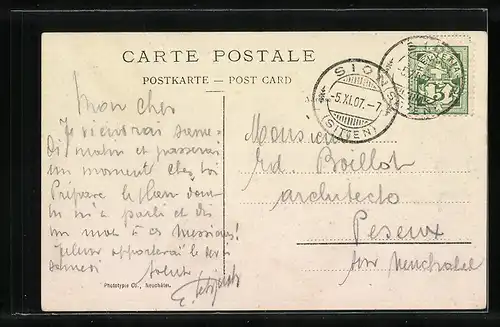 CARTE POSTALE
POSTKARTE — POST CARD
SION (SITTEN)
-5.XI.07.-7
Mon cher
Je viendrai same-
di matin et passerai
un moment chez toi
Prépare le plan dont
tu m'a parlé et dis
un mot à ces Messieurs!
apporterai le
samedi
Monsieur
Ed. Boillot
architecte
Peseux
sur Neuchatel
Phototypie Co., Neuchâtel.